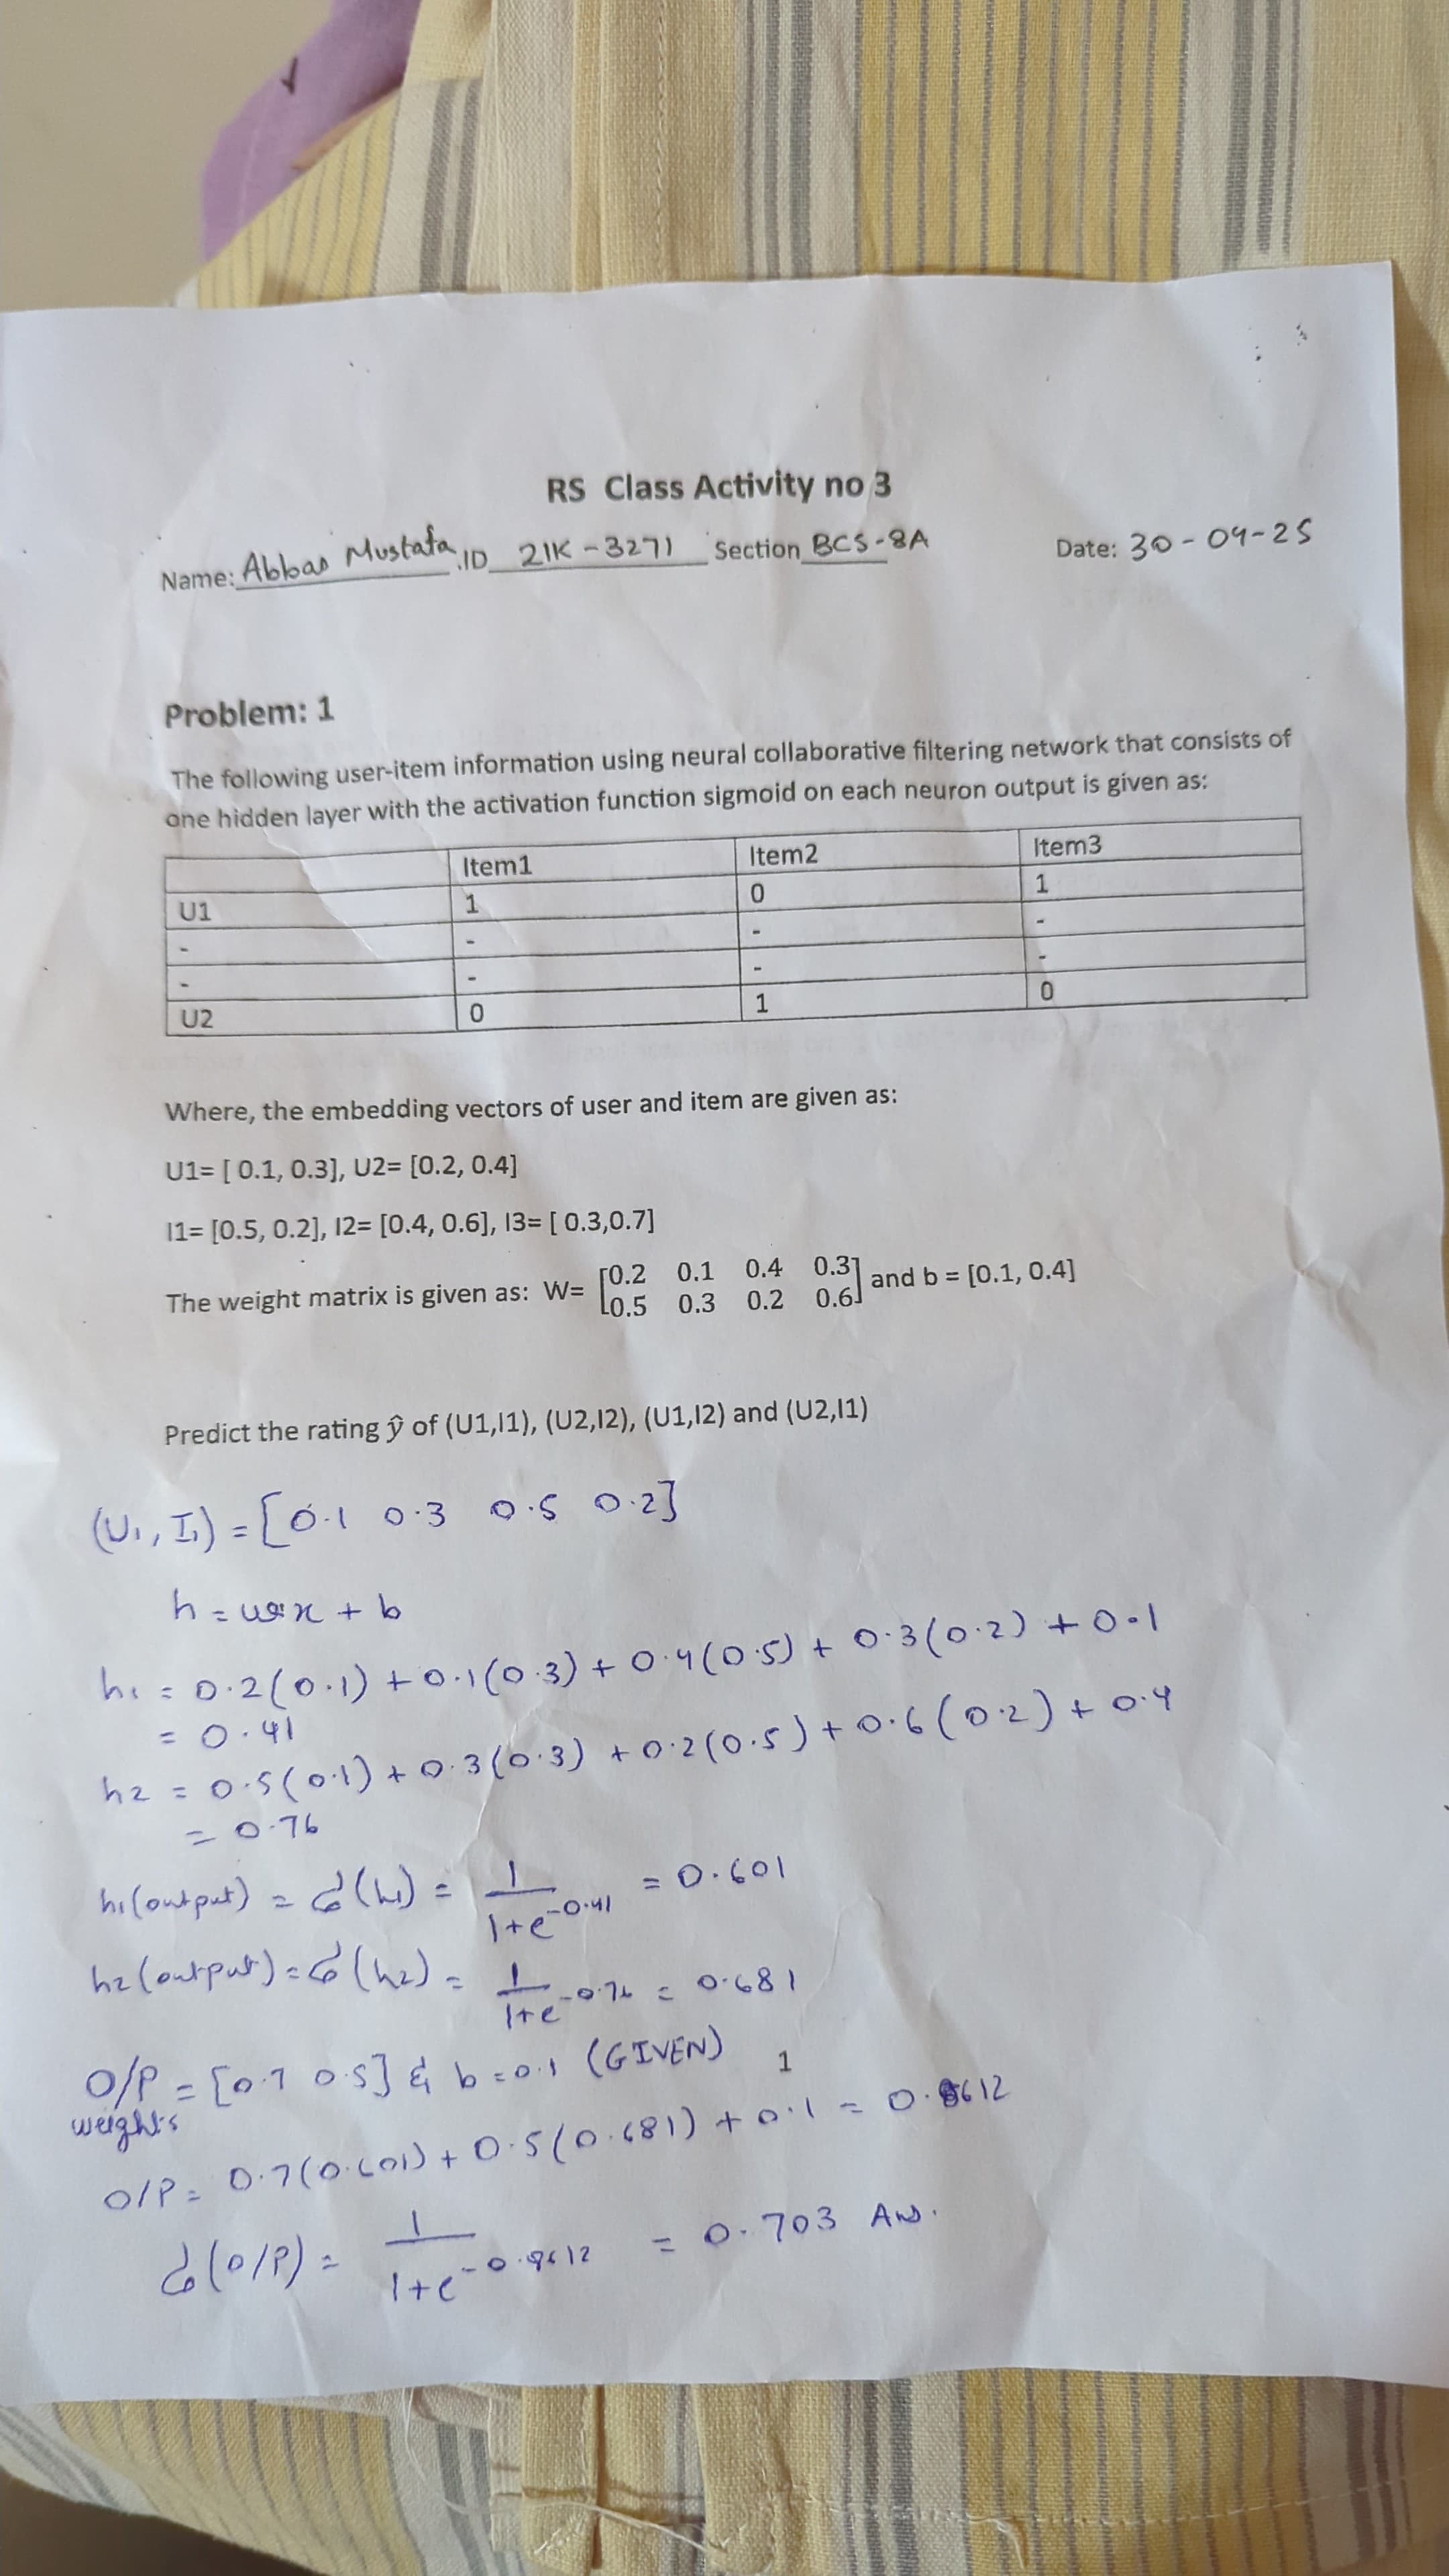 RS Class Activity no 3
Name: Abbas Mustafa .ID 21K-3271 Section BCS-8A Date: 30-04-25
Problem: 1
The following user-item information using neural collaborative filtering network that consists of
one hidden layer with the activation function sigmoid on each neuron output is given as:
Item1 Item2 Item3
U1 1 0 1
- - - -
- - - -
U2 0 1 0
Where, the embedding vectors of user and item are given as:
U1= [ 0.1, 0.3], U2= [0.2, 0.4]
I1= [0.5, 0.2], I2= [0.4, 0.6], I3= [ 0.3,0.7]
The weight matrix is given as: W= [0.2 0.1 0.4 0.3
0.5 0.3 0.2 0.6] and b = [0.1, 0.4]
Predict the rating ŷ of (U1,I1), (U2,I2), (U1,I2) and (U2,I1)
(U₁, I₁) = [0.1 0.3 0.5 0.2]
h = wx + b
h₁ = 0.2(0.1) + 0.1(0.3) + 0.4(0.5) + 0.3(0.2) + 0.1
= 0.41
h2 = 0.5(0.1) + 0.3(0.3) + 0.2(0.5) + 0.6(0.2) + 0.4
= 0.76
h₁(output) = σ(h₁) = 1/(1+e^-0.41) = 0.601
h2(output) = σ(h₂) = 1/(1+e^-0.76) = 0.681
O/P = [0.7 0.5] & b = 0.1 (GIVEN)
weights
1
O/P = 0.7(0.601) + 0.5(0.681) + 0.1 = 0.8612
σ(O/P) = 1/(1+e^-0.8612) = 0.703 Ans.